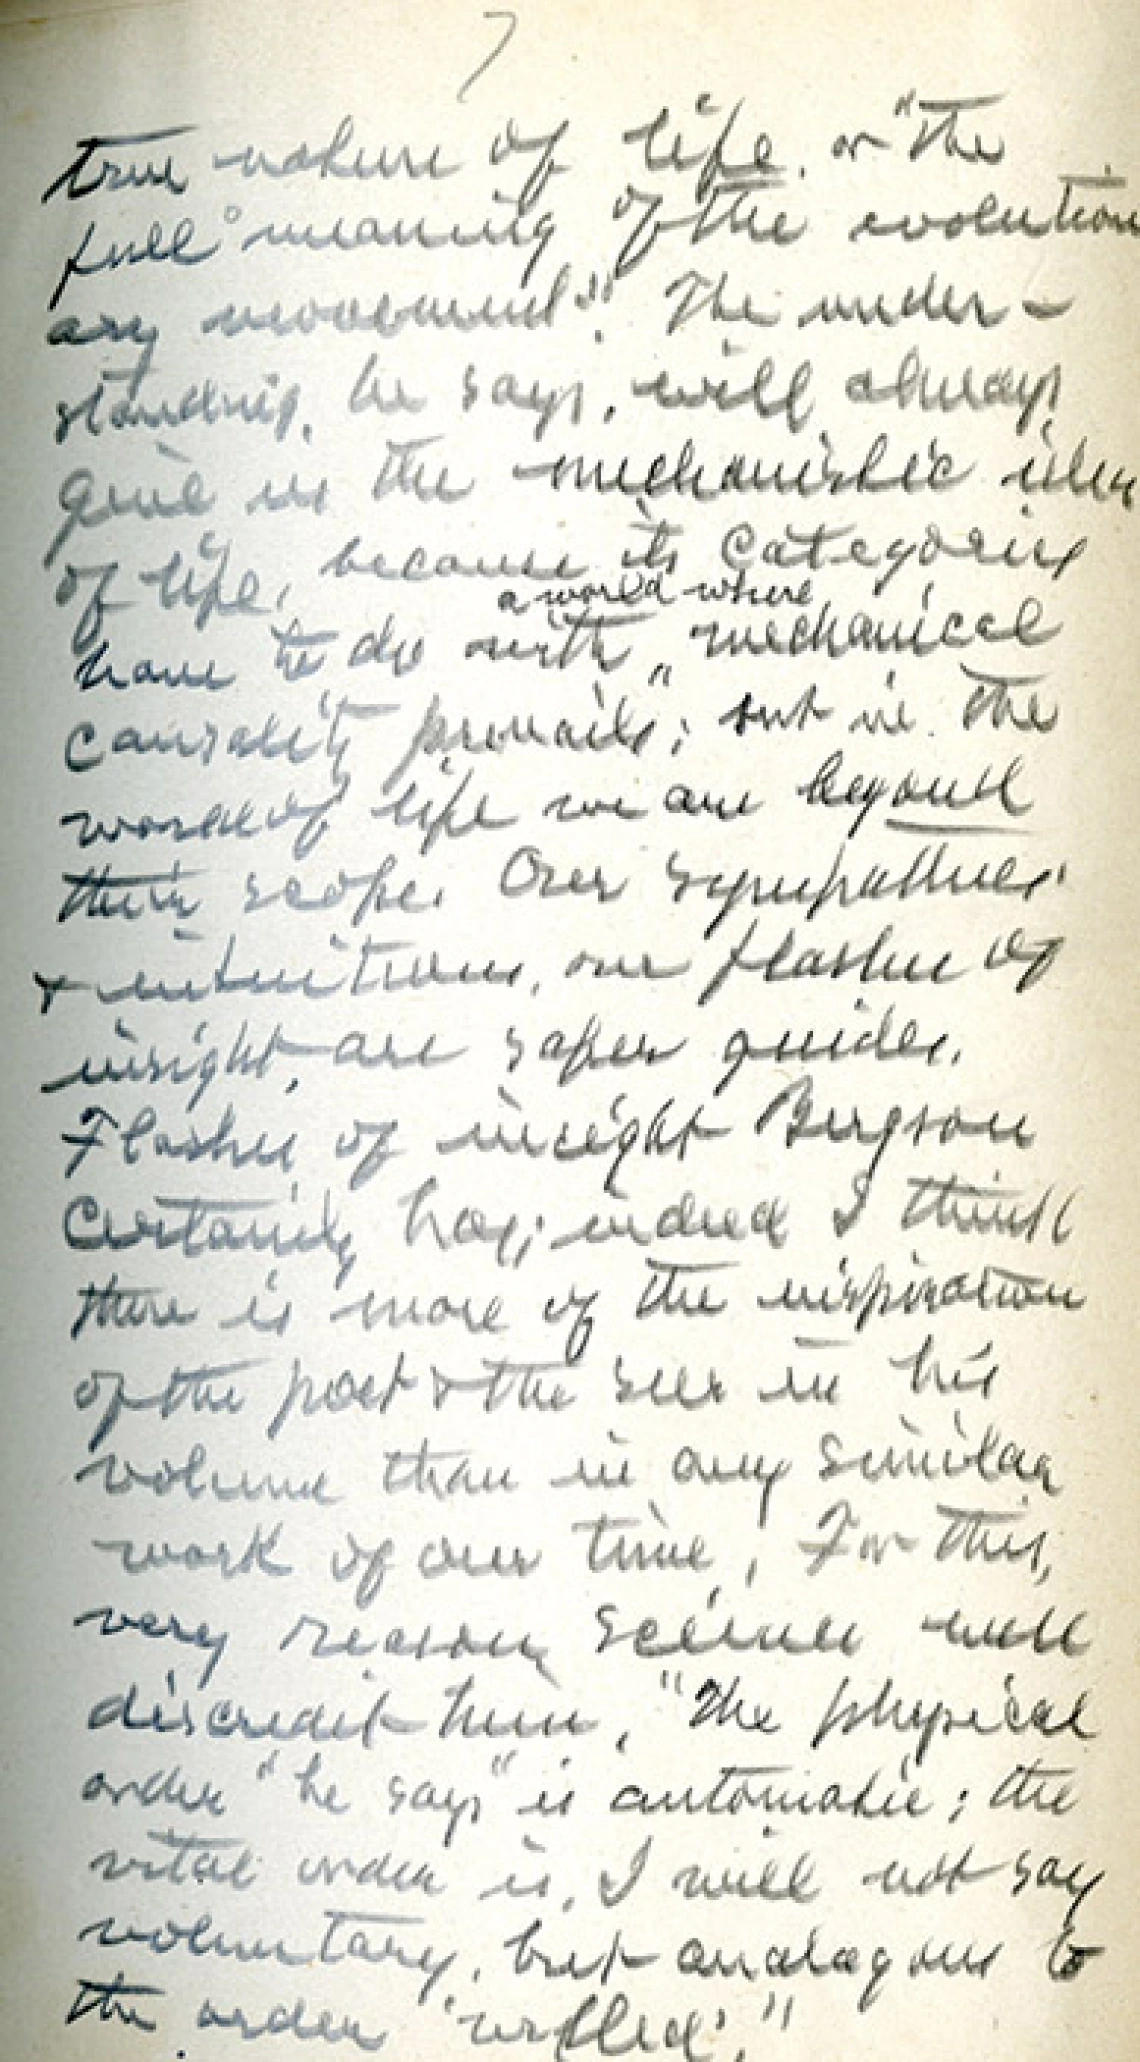 7
true nature of life or "the
full meaning of the evolution
ary movement". The under-
standing, he says, will always
give us the mechanistic idea
of life, because its categories
a world where
have to do with "mechanical
causality prevails"; but in the
world of life we are beyond
their scope. Our sympathies
& intuitions, our flashes of
insight, are safer guides.
Flashes of insight Bergson
certainly has; indeed I think
there is more of the inspiration
of the poet & the seer in his
volume than in any similar
work of our time. For this,
very reason science will
discredit him. "The physical
order" he says "is automatic; the
vital order is, I will not say
voluntary, but analogous to
the order 'willed'."